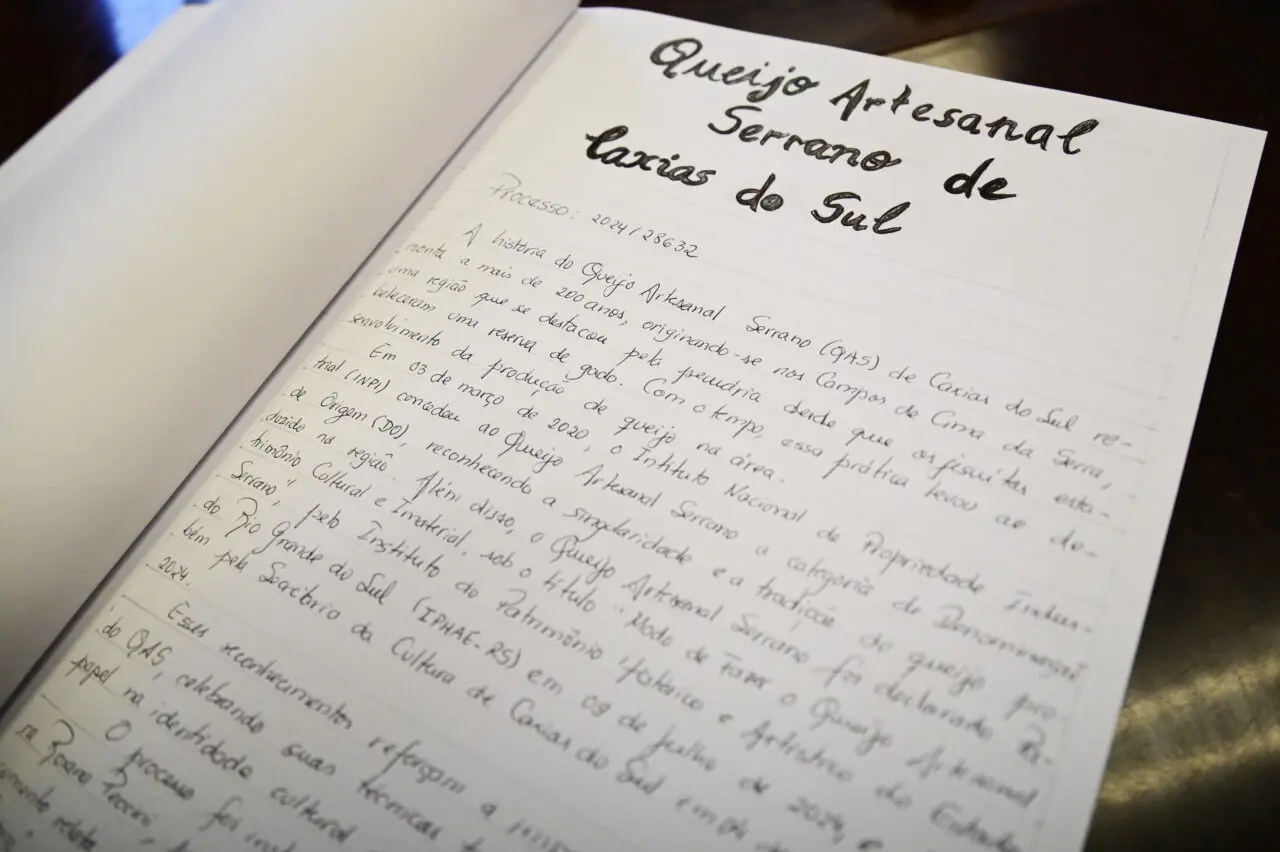 Queijo Artesanal
Serrano de
Caxias do Sul
Processo: 2024/28632
A história do Queijo Artesanal Serrano (QAS) de Caxias do Sul re-
monta a mais de 200 anos, originando-se nos Campos de Cima da Serra,
uma região que se destacou pela pecuária desde que os jesuítas esta-
beleceram uma reserva de gado. Com o tempo, essa prática levou ao de-
senvolvimento da produção de queijo na área.
Em 03 de março de 2020, o Intituto Nacional de Propriedade Indus-
trial (INPI) concedeu ao Queijo Artesanal Serrano a categoria de Denominação
de Origem (DO), reconhecendo a singularidade e a tradição do queijo pro-
duzido na região. Além disso, o Queijo Artesanal Serrano foi declarado Pa-
trimônio Cultural e Imaterial, sob o título "Modo de Fazer o Queijo Artesanal
Serrano", pelo Instituto do Patrimônio Histórico e Artístico do Estado
do Rio Grande do Sul (IPHAE-RS) em 09 de julho de 2024, e
bém pela Secretaria da Cultura de Caxias do Sul em
2024.
Esses reconhecimentos reforçam a
do QAS, celebrando suas técnicas
papel na identidade cultural
O processo foi